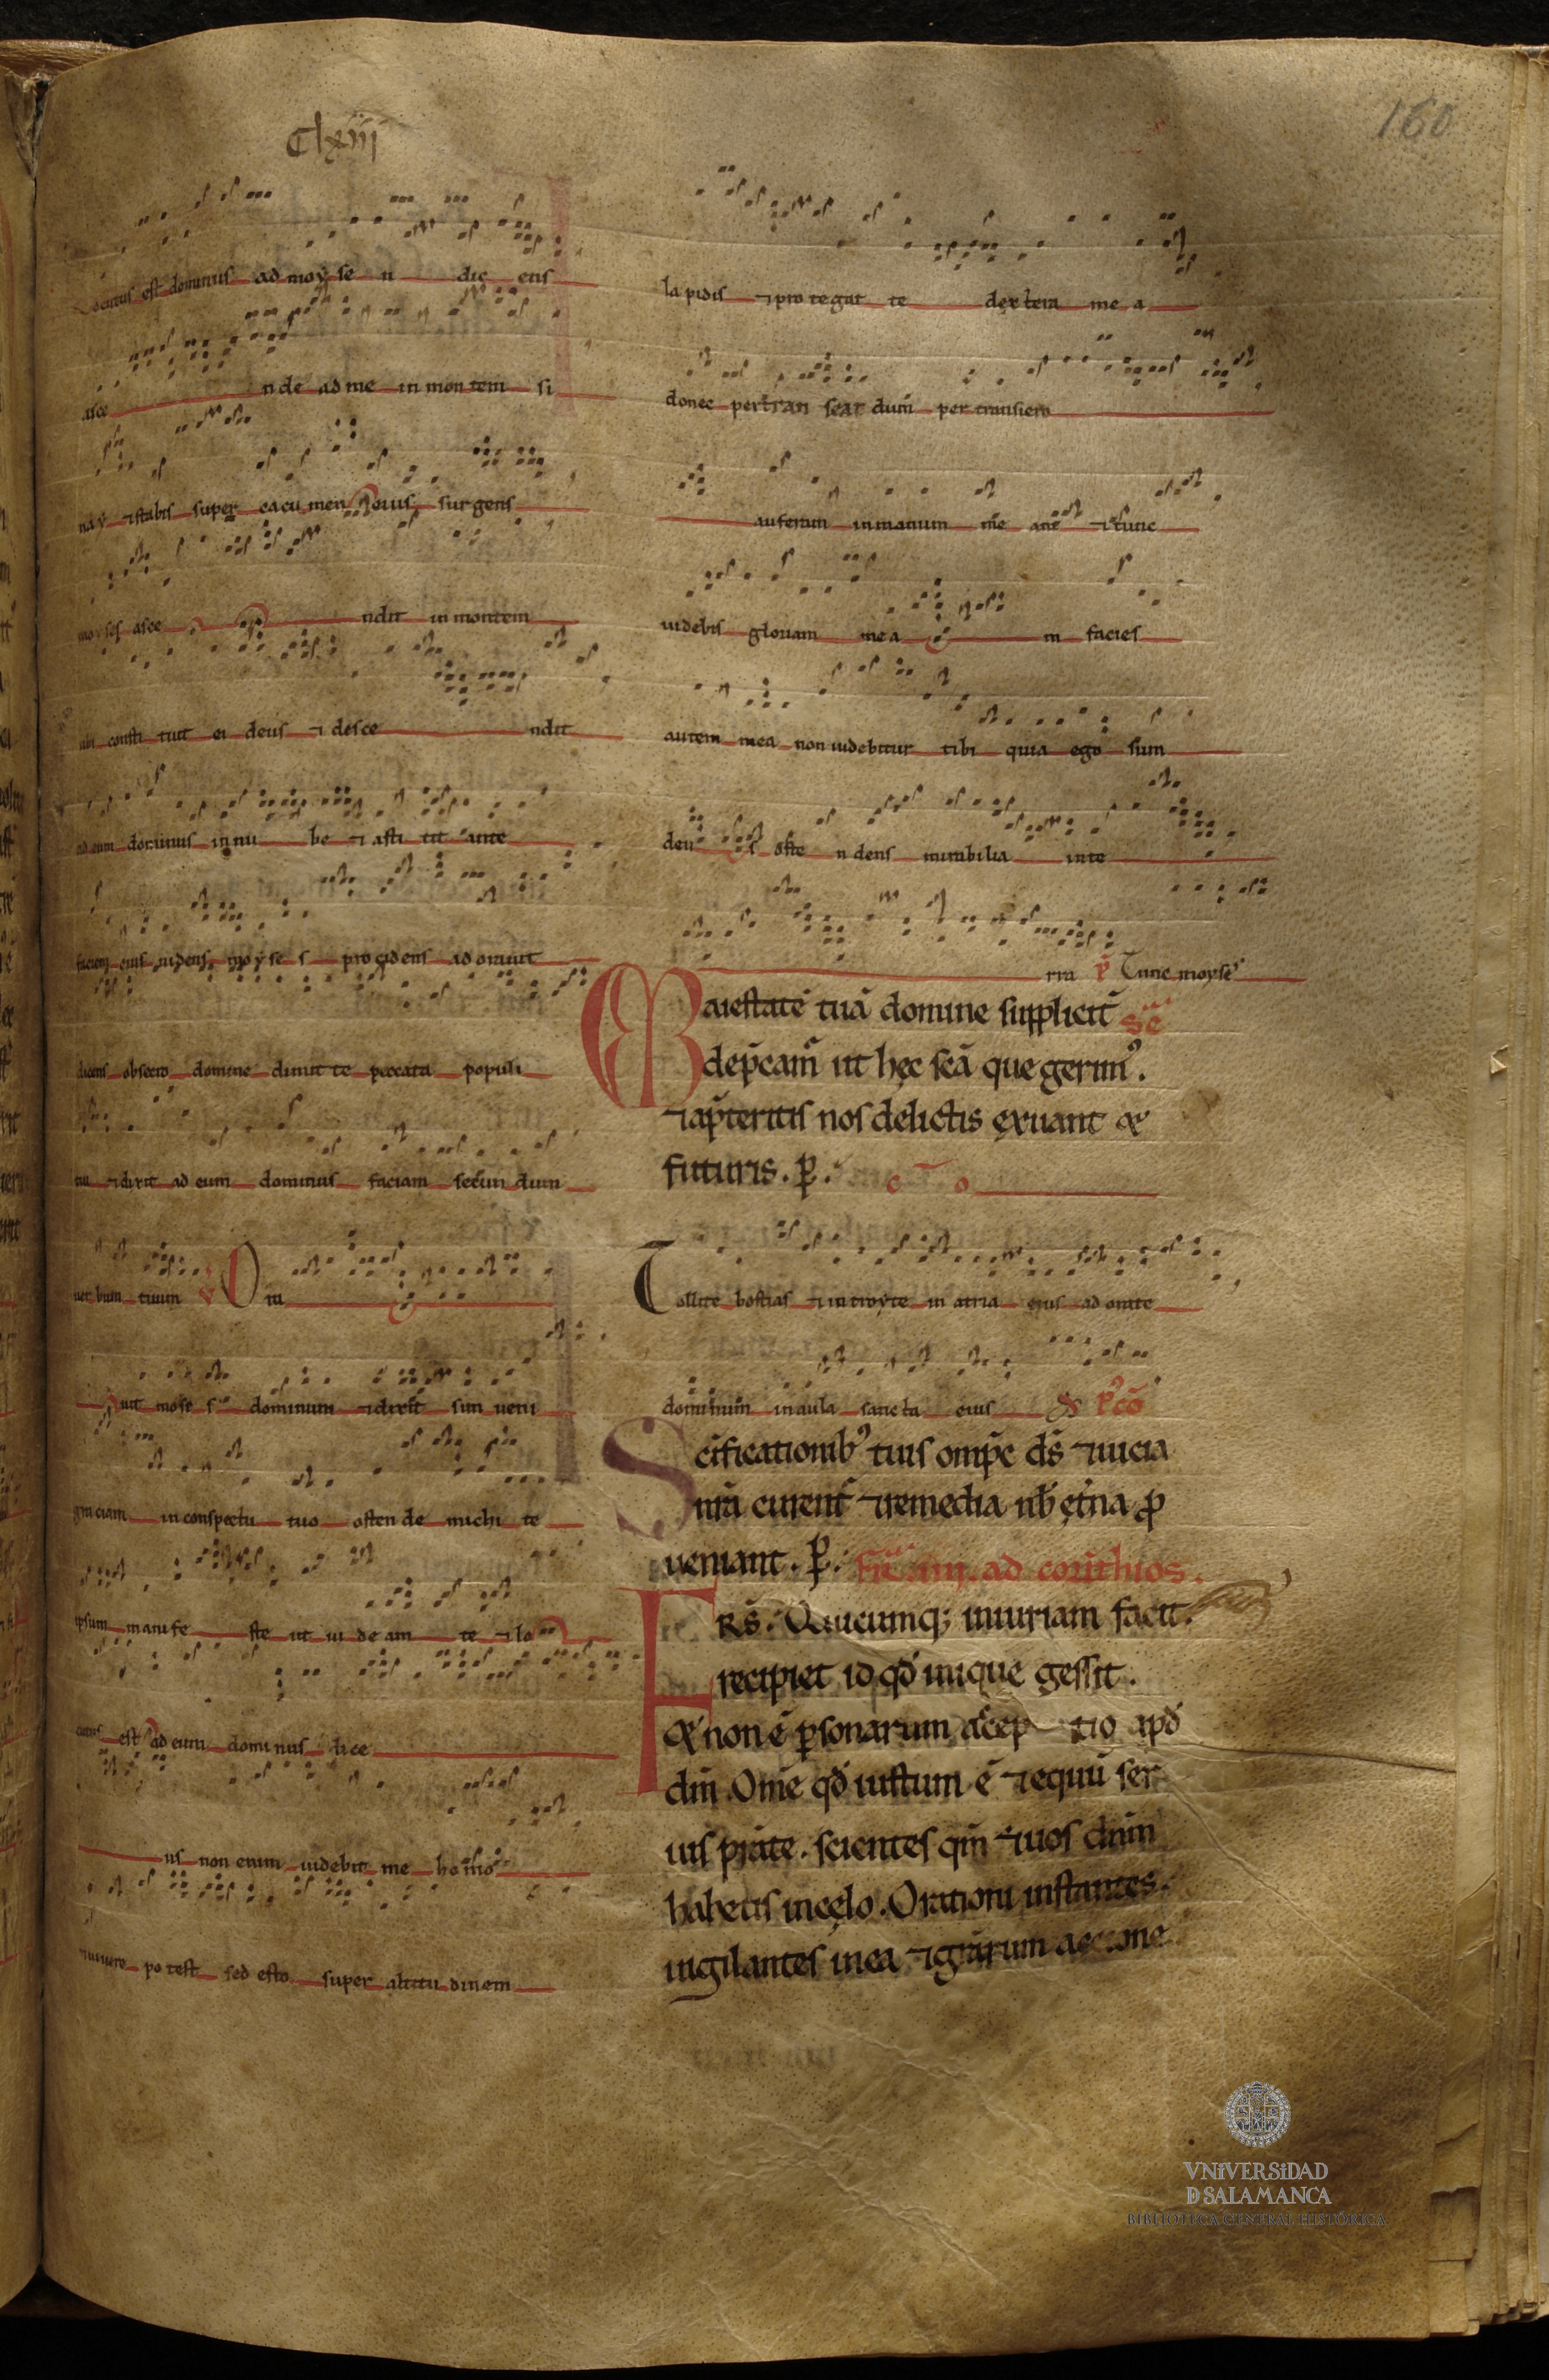 Clxiii
160
Locutus est dominus ad moyse n dic ens
asce nde ad me in mon tem si
nay ⁊stabis super cacu men eius surgens
moyses asce ndit in montem
ubi consti tuit ei deus ⁊ desce ndit
ad eum dominus in nu be ⁊ asti tit ante
faciem eius uidens moyse s procidens ad orauit
dicens obsecro domine dimit te peccata populi
tui ⁊dixit ad eum dominus faciam secun dum
uer bum tuum V Ora
uit moise s dominum ⁊dixit sim ueni
gratiam in conspectu tuo osten de michi te
ipsum manife ste ut ui de am te ⁊ lo
cutus est ad eum domi nus dice
ns non enim uidebit me homo
⁊uiuere po test sed esto super altitu dinem
la pidis ⁊pro tegat te dextera me a
donec pertran seat dum per transiero
auferam in manum me am ⁊ tunc
uidebis gloriam mea m facies
autem mea non uidebitur tibi quia ego sum
deu s oste n dens mirabilia in te
rra P̄ Tunc moyse
Maiestatē tuā domine suppliciť
Sēc̄
dep̄camˀ ut hęc sc̄ā que gerimꝰ.
⁊ap̄teritis nos delictis exuant ⁊
futuris. ꝑ. c̄ō
Tollite hostias ⁊introyte in atria eius ad orate
dominum in aula sancta eius P̄ꝰcō
Sc̄ificationibꝰ tuis omp̄s ds̄ ⁊uicia
nr̄a curentˀ ⁊remedia nb̄ et̄na ꝓ
ueniant. ꝑ. Fr̄ . iiij. ad corinthios.
FRS̄. Qui cumq; iniuriam facit.
recipiet id qd̄ inique gessit.
⁊ non ē ꝑsonarum acceptio apd̄
dm̄. Om̄e qd̄ iustum ē ⁊equū ser
uis prāte. scientes qm̄ ⁊uos dnm̄
habetis in cęlo. Orationi instantes.
uigilantes in ea ⁊ gratiarum actione
VNiVERSiDAD
D SALAMANCA
BIBLIOTECA GENERAL HISTÓRICA